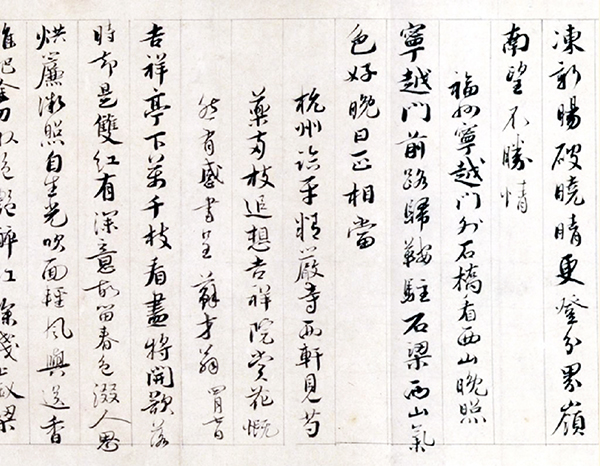 凍新暘破曉晴更登分界嶺
南望不勝情
福州寧越門外石橋看西山晚照
寧越門前路歸鞍駐石梁西山氣
色好晚日正相當
杭州臨平精嚴寺西軒見芍
藥兩枝追想吉祥院賞花慨
然有感書呈蘇才翁
吉祥亭下萬千枝看盡將開欲落
時却是雙紅有深意故留春色綴人思
烘簾微照自生光吹面輕風與送香
誰把金刀收絕豔醉紅深淺上釵梁